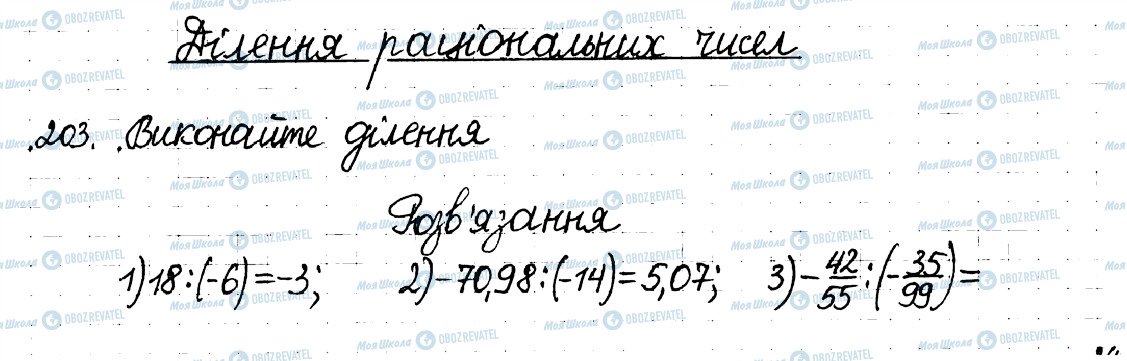 Ділення раціональних чисел
203. Виконайте ділення
Розв'язання
1) 18 : (-6) = -3; 2) -70,98 : (-14) = 5,07; 3) -42/55 : (-35/99) =